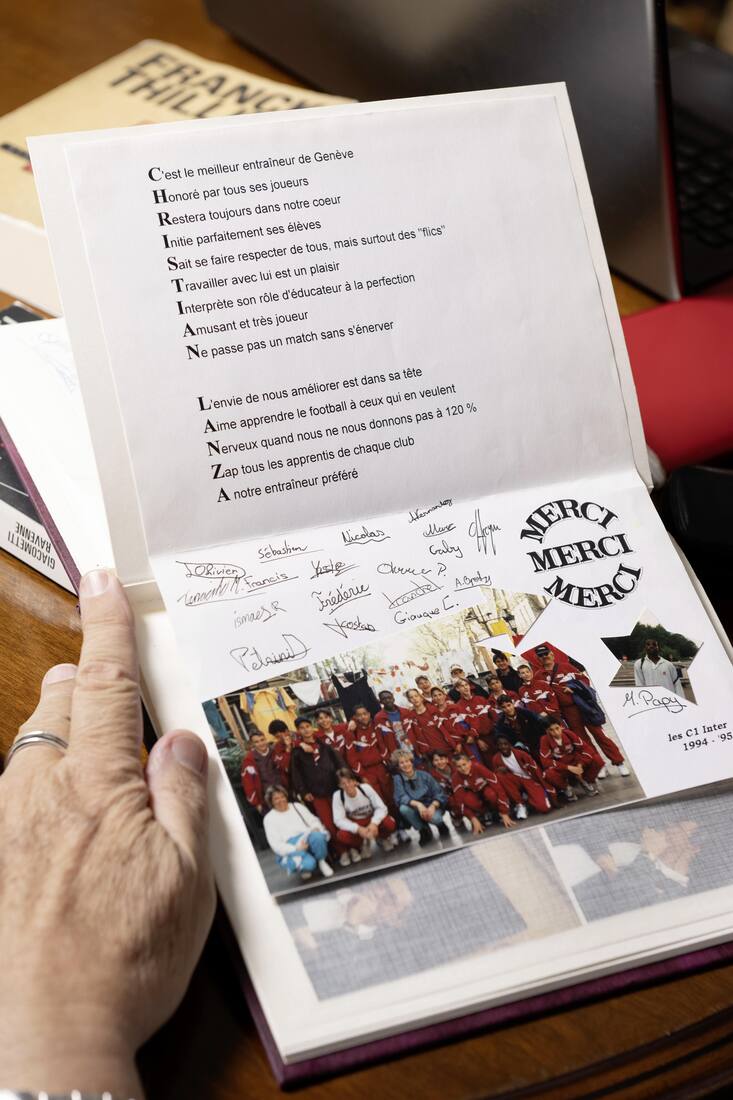 FRANCK
THILL
C'est le meilleur entraîneur de Genève
Honoré par tous ses joueurs
Restera toujours dans notre coeur
Initie parfaitement ses élèves
Sait se faire respecter de tous, mais surtout des "flics"
Travailler avec lui est un plaisir
Interprète son rôle d'éducateur à la perfection
Amusant et très joueur
Ne passe pas un match sans s'énerver
L'envie de nous améliorer est dans sa tête
Aime apprendre le football à ceux qui en veulent
Nerveux quand nous ne nous donnons pas à 120 %
Zap tous les apprentis de chaque club
A notre entraîneur préféré
GIACOMETTI
RAVENNE
Sébastien
Nicolas
Marc
Gaby
Francis
Frédéric
Giauque L.
MERCI
MERCI
MERCI
M. Papy
les C1 Inter
1994 - '95